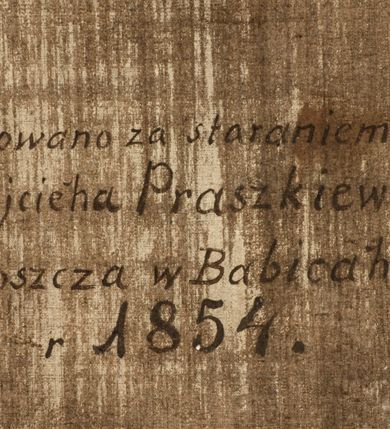 owano za staraniem
jcieha Praszkiew
oszcza w Babicah
r 1854.